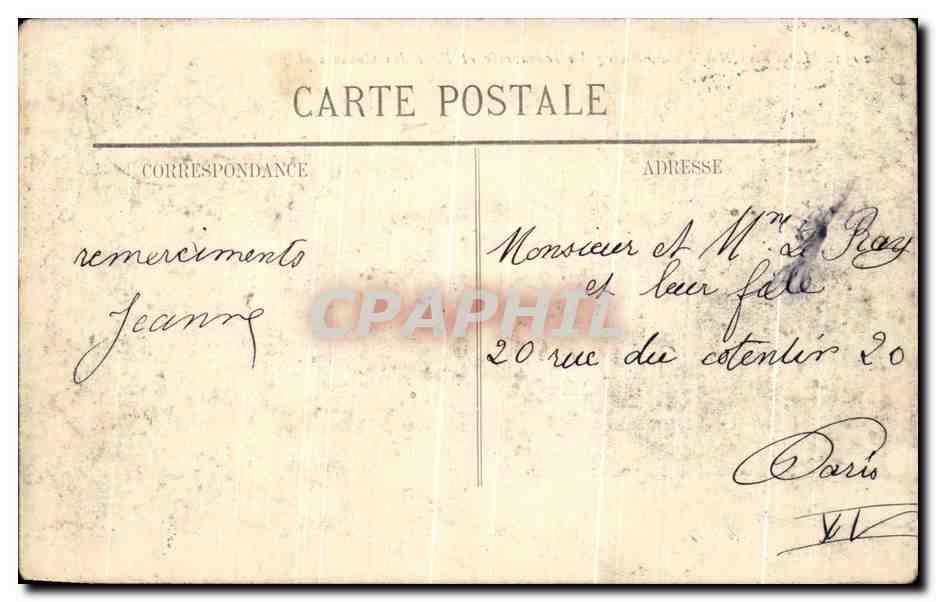 CARTE POSTALE
CORRESPONDANCE
ADRESSE
remerciments
Jeanne
Monsieur et Mm Le Ray
et leur
20 rue du cotentin 20
Paris
XV
CPAPHIL